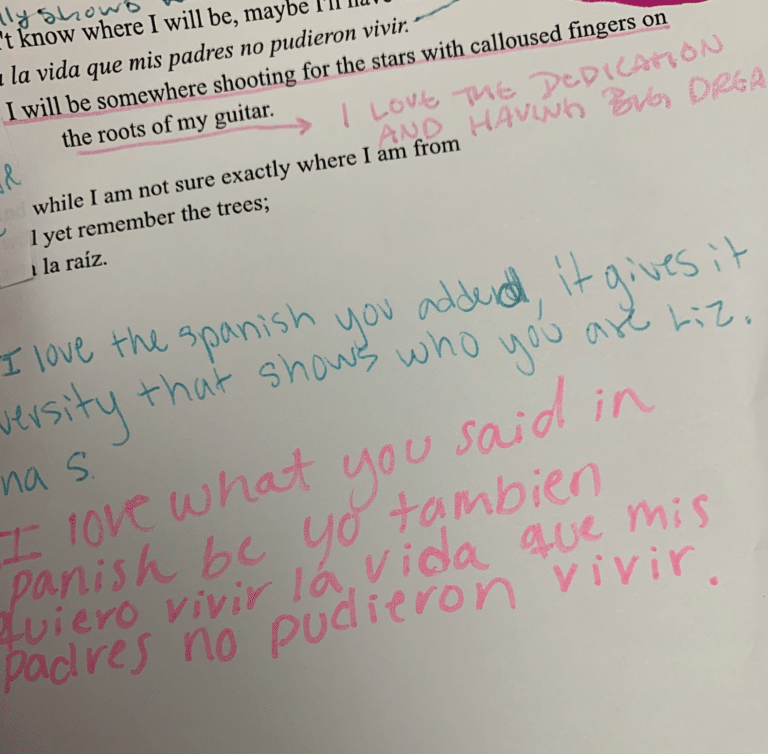 lly shows
't know where I will be, maybe I'll
la vida que mis padres no pudieron vivir.
I will be somewhere shooting for the stars with calloused fingers on
the roots of my guitar.
I LOVE THE DEDICATION
AND HAVING BIG DREA
while I am not sure exactly where I am from
I yet remember the trees;
la raíz.
I love the spanish you added, it gives it
versity that shows who you are Liz.
na S.
I love what you said in
panish bc yo tambien
quiero vivir la vida que mis
padres no pudieron vivir.